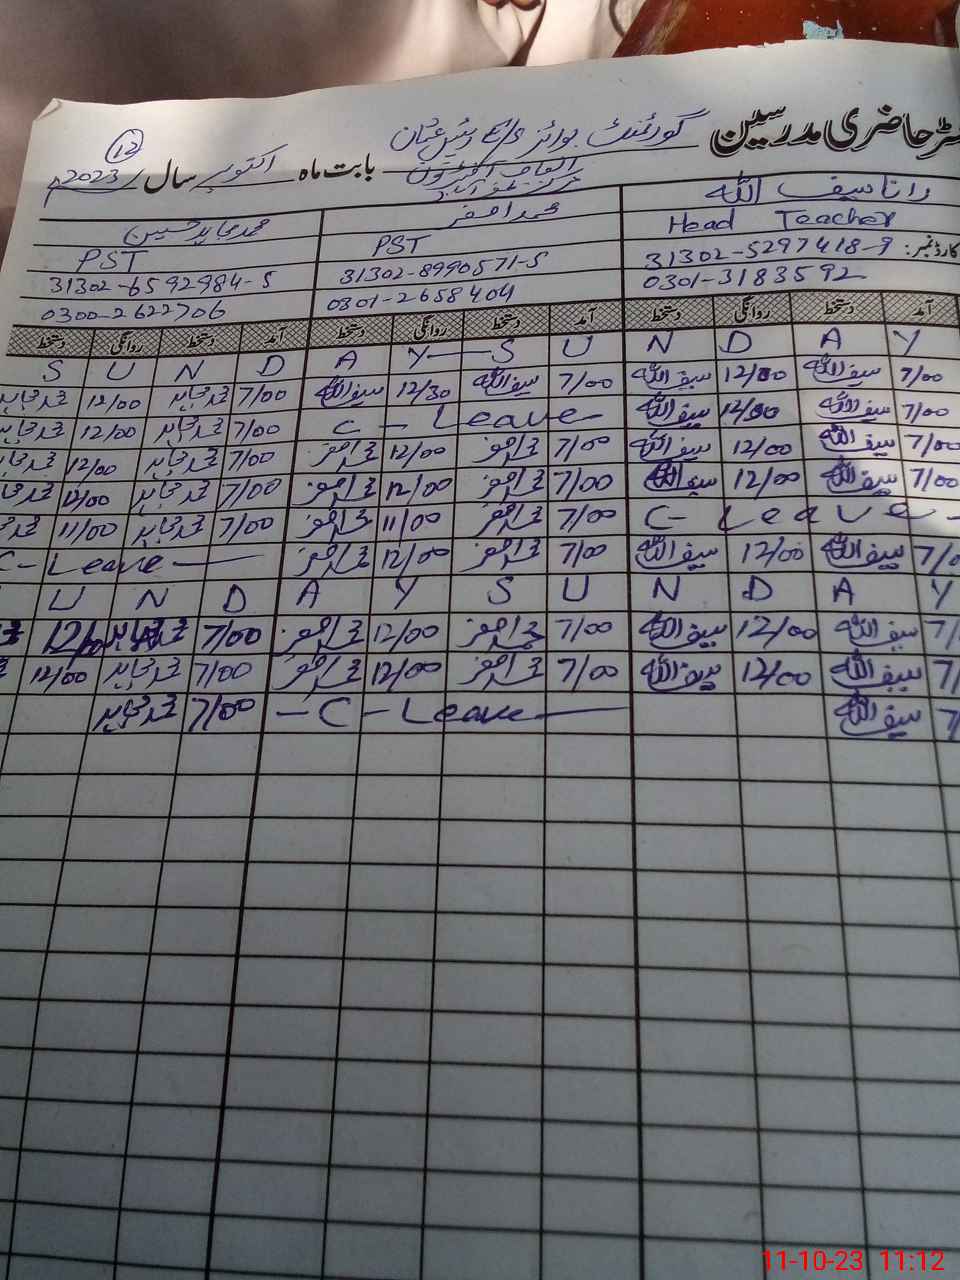 رجسٹر حاضری مدرسین گورنمنٹ بوائز E/S رئیس عثمان بابت ماہ اکتوبر سال 2023ء
12
رانا سیف اللہ محمد اصغر محمد مجاہد حسین
Head Teacher PST PST
کارڈ نمبر: 31302-5297418-9 31302-8990571-5 31302-6592984-5
0301-3183592 0301-2658404 0300-2622706
آمد دستخط روانگی دستخط آمد دستخط روانگی دستخط آمد دستخط روانگی دستخط
S U N D A Y — S U N D A Y
7/00 سیف اللہ 12/00 سیف اللہ 7/00 سیف اللہ 12/30 سیف اللہ 7/00 محمد مجاہد 12/00 محمد مجاہد
7/00 سیف اللہ 12/00 سیف اللہ C - Leave - 7/00 محمد مجاہد 12/00 محمد مجاہد
7/00 سیف اللہ 12/00 سیف اللہ 7/00 محمد اصغر 12/00 محمد اصغر 7/00 محمد مجاہد 12/00 محمد مجاہد
7/00 سیف اللہ 12/00 سیف اللہ 7/00 محمد اصغر 12/00 محمد اصغر 7/00 محمد مجاہد 12/00 محمد مجاہد
C - Leave - 7/00 محمد اصغر 11/00 محمد اصغر 7/00 محمد مجاہد 11/00 محمد
7/0 سیف اللہ 12/00 سیف اللہ 7/00 محمد اصغر 12/00 محمد اصغر C - Leave —
U N D A Y S U N D A Y
7/ سیف اللہ 12/00 سیف اللہ 7/00 محمد اصغر 12/00 محمد اصغر 7/00 محمد مجاہد 12/0
7/ سیف اللہ 12/00 سیف اللہ 7/00 محمد اصغر 12/00 محمد اصغر 7/00 محمد مجاہد 12/00
7/ سیف اللہ - C - Leave — 7/00 محمد مجاہد
11-10-23 11:12